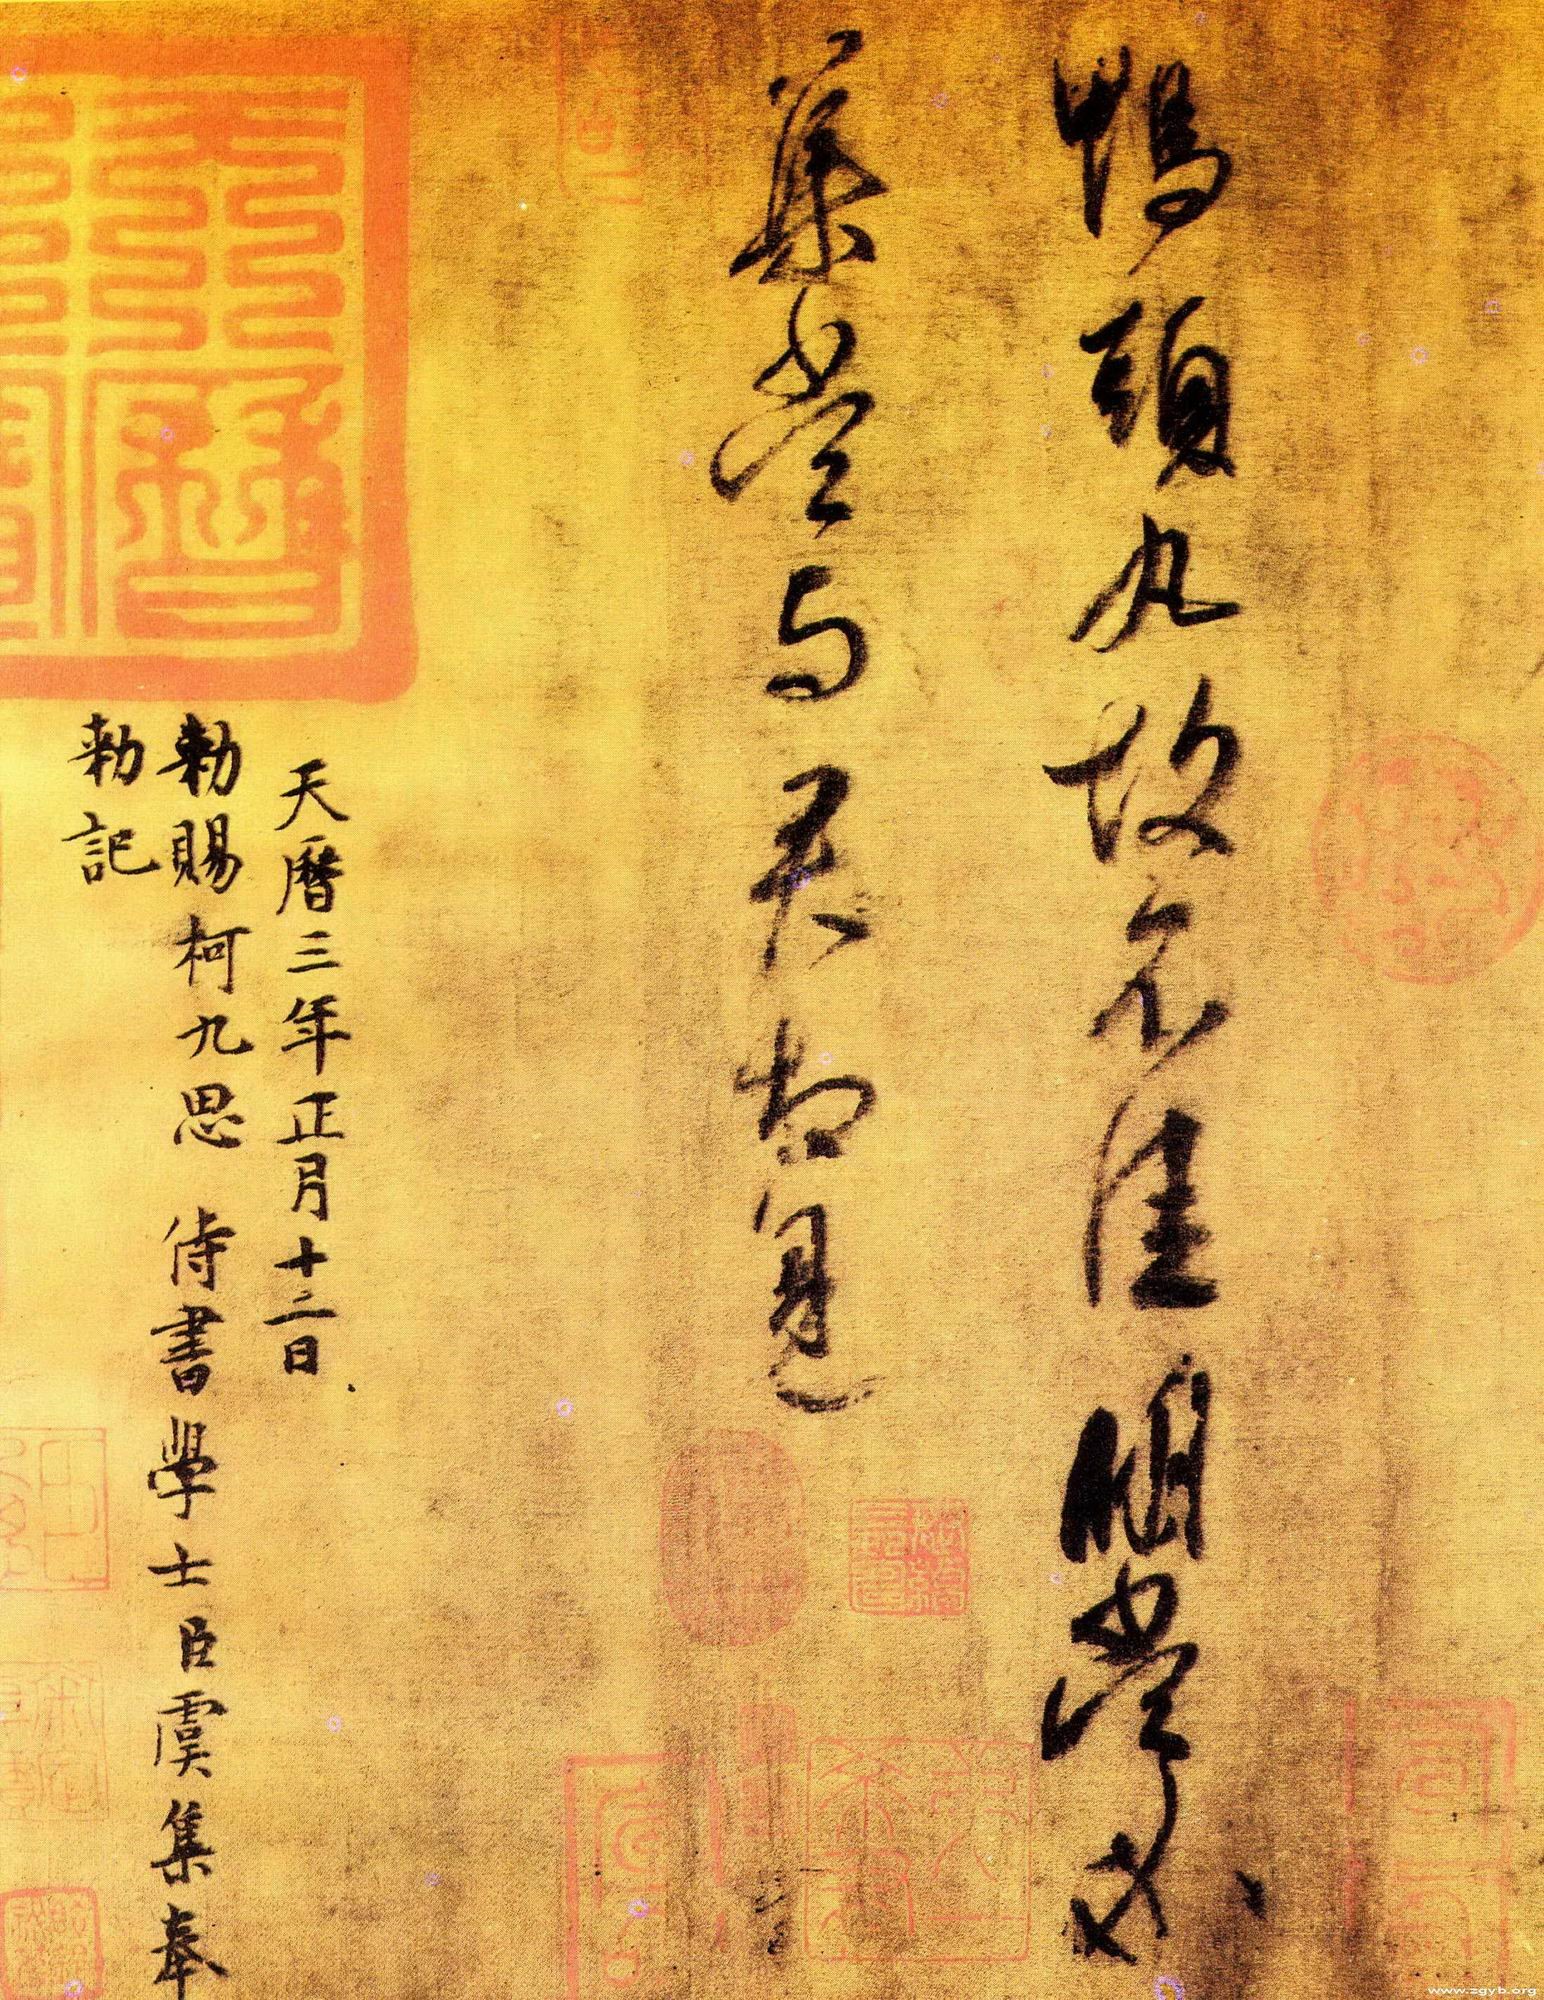 鴨頭丸故不佳明當必
集當與君相見
天曆三年正月十二日
勑賜柯九思侍書學士臣虞集奉
勑記
天曆之寶
www.zgyb.org